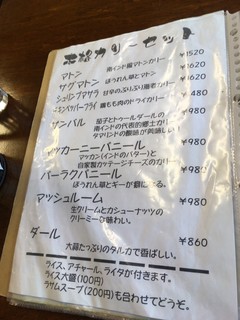 本格カリーセット
マトン 南インド風マトンカリー ¥1520
サグマトン ほうれん草とマトン ¥1620
シュリンプマサラ 甘辛のぷりぷり海老カリー ¥1620
チキンペッパーフライ 鶏もも肉のドライカリー ¥980
サンバル 茄子とトゥールダールの ¥980
南インドの代表的郷土カリー
タマリンドの酸味が美味しい
マッカーニーパニール ¥980
マッカン(インドのバター)と
自家製カッテージチーズのカリー
パーラクパニール ¥980
ほうれん草とギーが癖になる。
マッシュルーム ¥980
生クリームとカシューナッツの
クリーミーな味わい。
ダール ¥860
大蒜たっぷりのタルカで香ばしい。
ライス、アチャール、ライタが付きます。
ライス大盛(100円)
ラサムスープ(200円)も合わせてどうぞ。